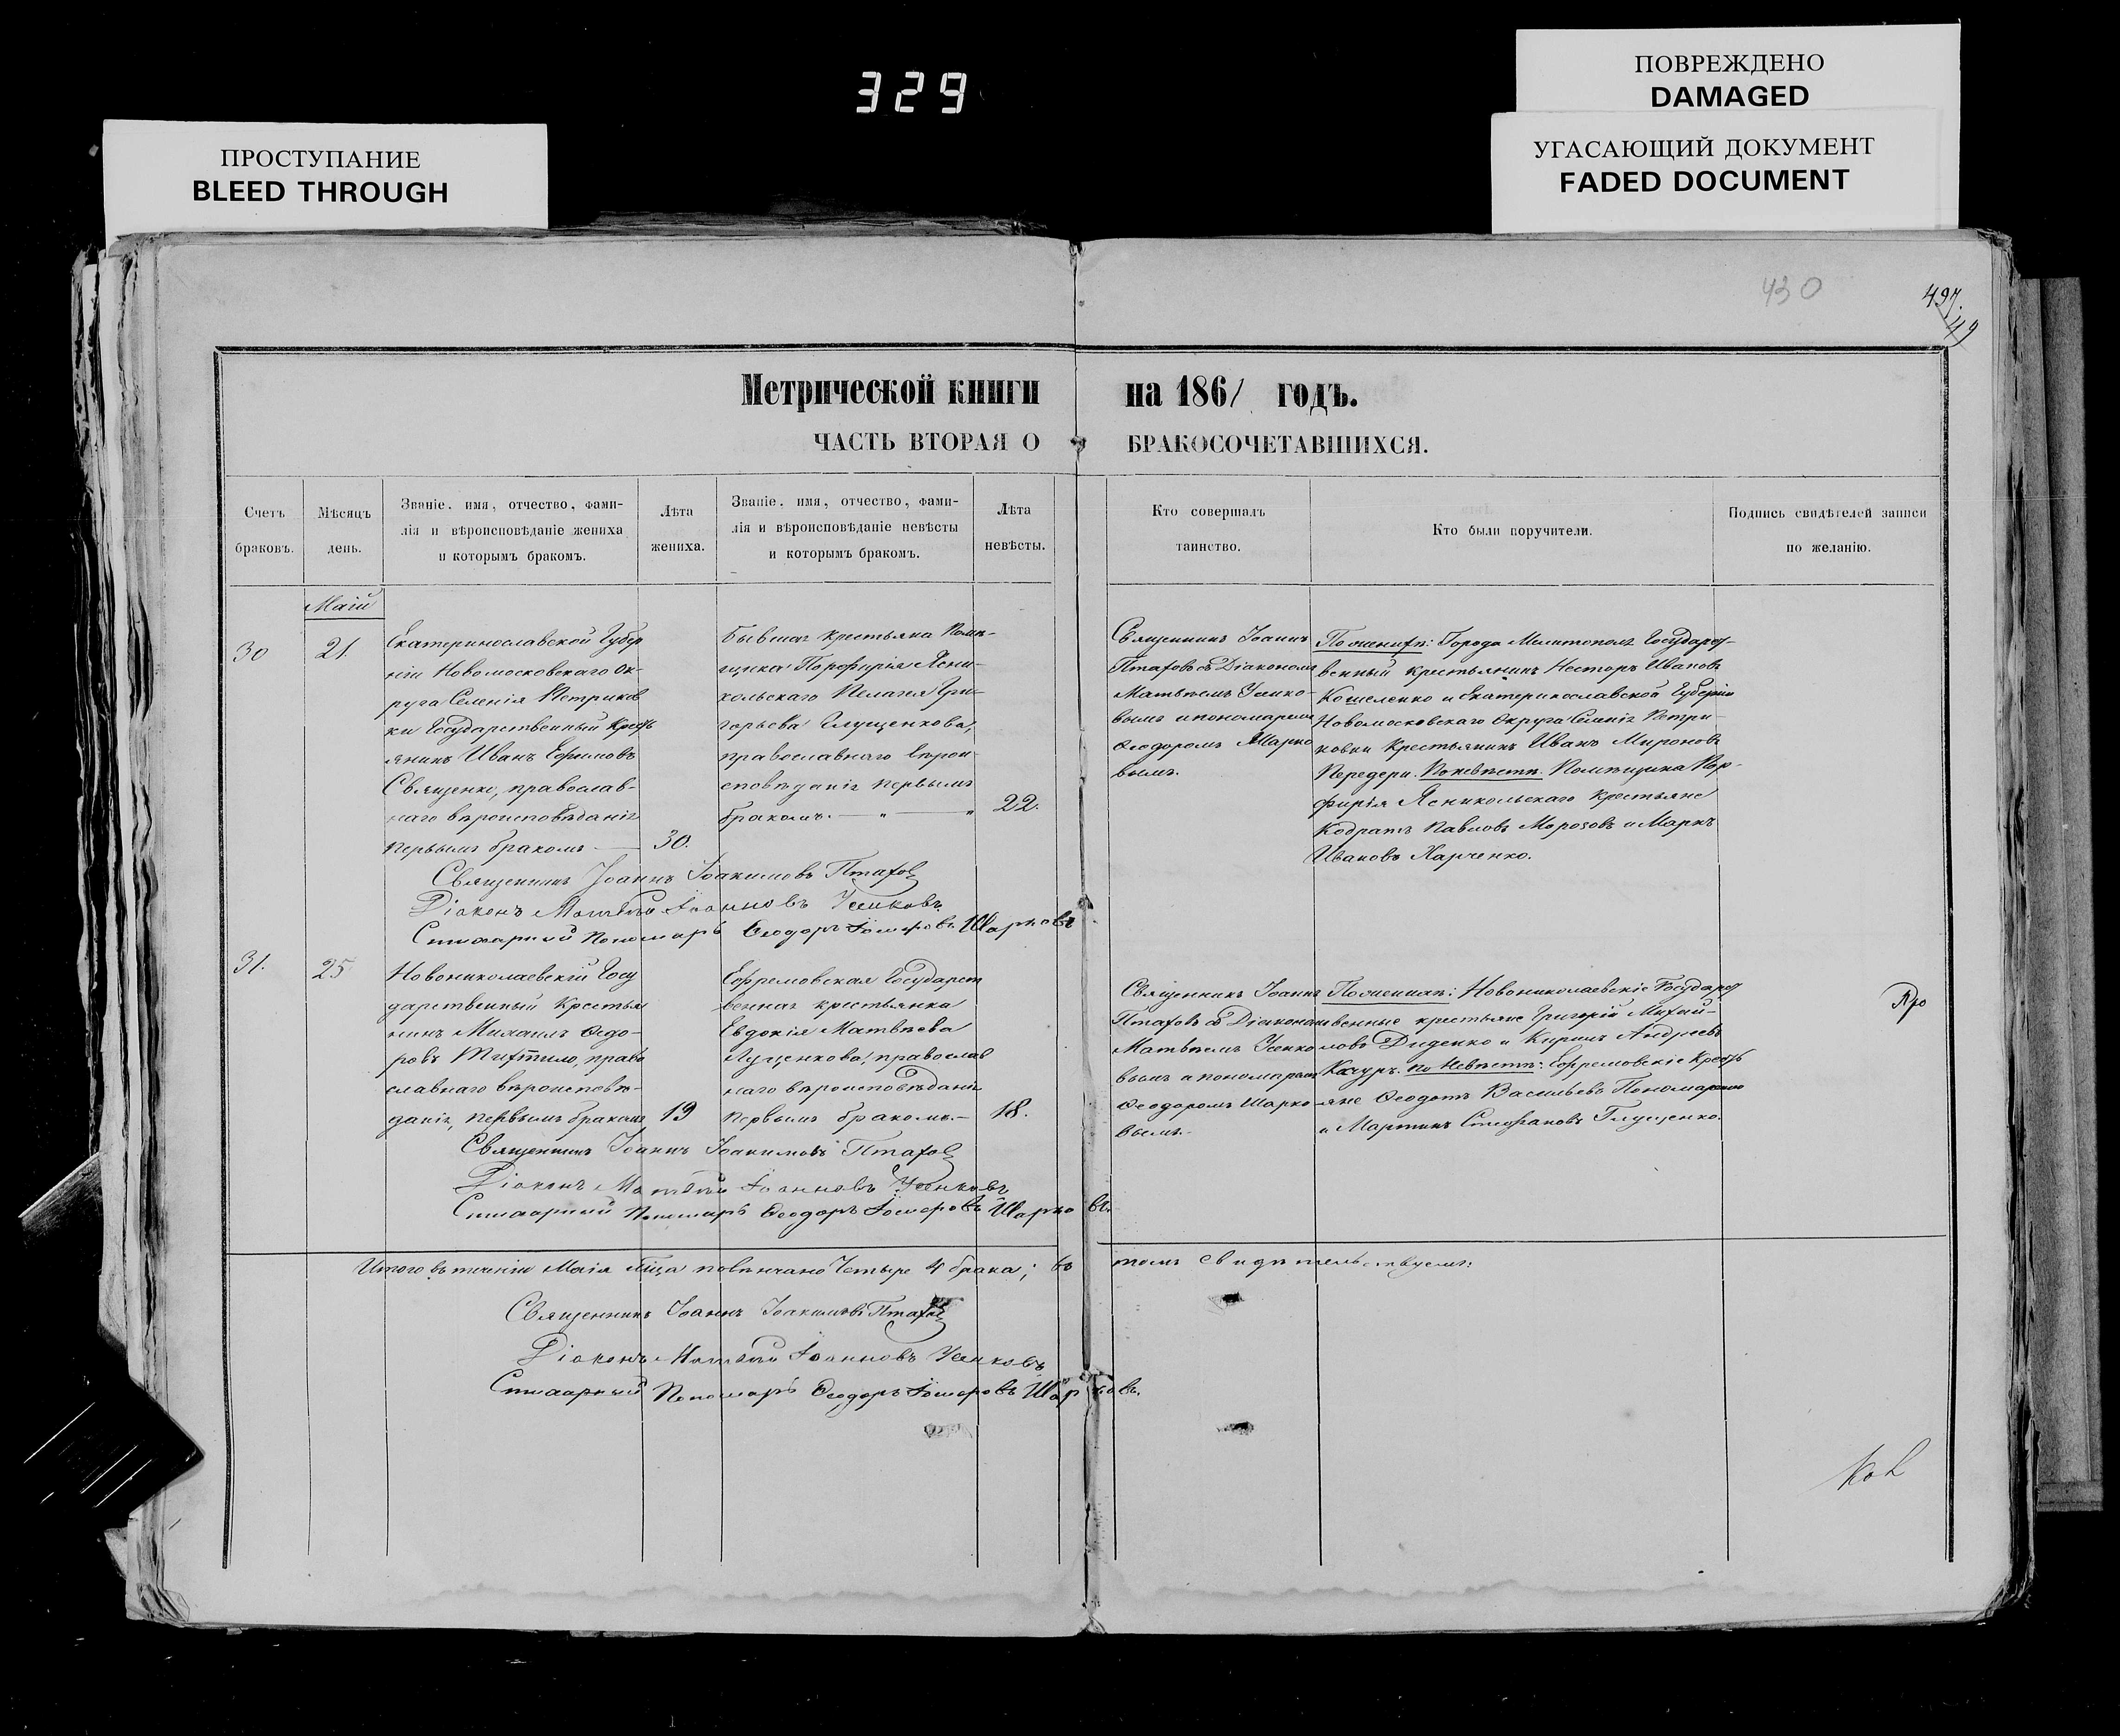 329
ПОВРЕЖДЕНО
DAMAGED
УГАСАЮЩИЙ ДОКУМЕНТ
FADED DOCUMENT
ПРОСТУПАНИЕ
BLEED THROUGH
430
497.
49
Метрической книги на 1861 годъ.
ЧАСТЬ ВТОРАЯ О БРАКОСОЧЕТАВШИХСЯ.
Счетъ
браковъ.
Мѣсяцъ
день.
Званіе, имя, отчество, фами-
лія и вѣроисповѣданіе жениха
и которымъ бракомъ.
Лѣта
жениха.
Званіе, имя, отчество, фами-
лія и вѣроисповѣданіе невѣсты
и которымъ бракомъ.
Лѣта
невѣсты.
Кто совершалъ
таинство.
Кто были поручители.
Подпись свидѣтелей записи
по желанію.
Маій
30
21.
Екатеринославской Губер
ніи Новомосковскаго Ок-
руга Селенія Петриков
ки Государственный Кресть
янинъ Иванъ Ефимовъ
Священко, православ-
наго вѣроисповѣданія
первымъ бракомъ
30.
Бывшая крестьяка Помѣ-
щика Порфирія Ясни-
кольскаго Пелагея Гри-
горьева Глущенкова,
православнаго вѣрои-
сповѣданія первымъ
бракомъ.
22.
Священникъ Іоаннъ
Птаховъ съ Діакономъ
Матѳеемъ Усико-
вымъ и пономаремъ
Ѳеодоромъ Шарко
вымъ.
По женихѣ: Города Мелитополя Государст-
венный крестьянинъ Несторъ Ивановъ
Кошеленко и Екатеринославской Губерніи
Новомосковскаго Округа Селенія Петри-
ковки Крестьянинъ Иванъ Мироновъ
Передери. По невѣстѣ: Помѣщика Пор-
фирія Ясникольскаго крестьяне
Кодратъ Павловъ Морозовъ и Маркъ
Ивановъ Харченко.
Священникъ Іоаннъ Іоакимовъ Птахов
Діаконъ Матѳей Іоанновъ Усиковъ
Стихарный Пономарь Ѳеодоръ Шарковъ
31.
25
Новониколаевскій Госу
дарственный Крестья
нинъ Михаилъ Ѳедо-
ровъ Тихтило, право
славнаго вѣроисповѣ-
данія, первымъ бракомъ
19
Ефремовская Государст
венная крестьянка
Евдокія Матвѣева
Лущенкова, православ
наго вѣроисповѣданія
первымъ бракомъ.
18.
Священникъ Іоаннъ
Птаховъ съ Діакономъ
Матѳеемъ Усико
вымъ и пономаремъ
Ѳеодоромъ Шарко-
вымъ.
По женихѣ: Новониколаевскіе Государст
венные крестьяне Григорій Михай-
ловъ Диденко и Кирилъ Андреевъ
Качуръ. по Невѣстѣ: Ефремовскіе Кресть
яне Ѳеодотъ Васильевъ Пономаренко
и Мартинъ Стефановъ Глущенко.
Священникъ Іоаннъ Іоакимовъ Птахов
Діаконъ Матѳей Іоанновъ Усиковъ
Стихарный Пономарь Ѳеодоръ Шарковъ.
Итого въ теченіи Маія мѣсяца повѣнчано Четыре 4 брака; въ томъ свидѣтельствуемъ:
Священникъ Іоаннъ Іоакимовъ Птахов
Діаконъ Матѳей Іоанновъ Усиковъ
Стихарный Пономарь Ѳеодоръ Шарковъ.